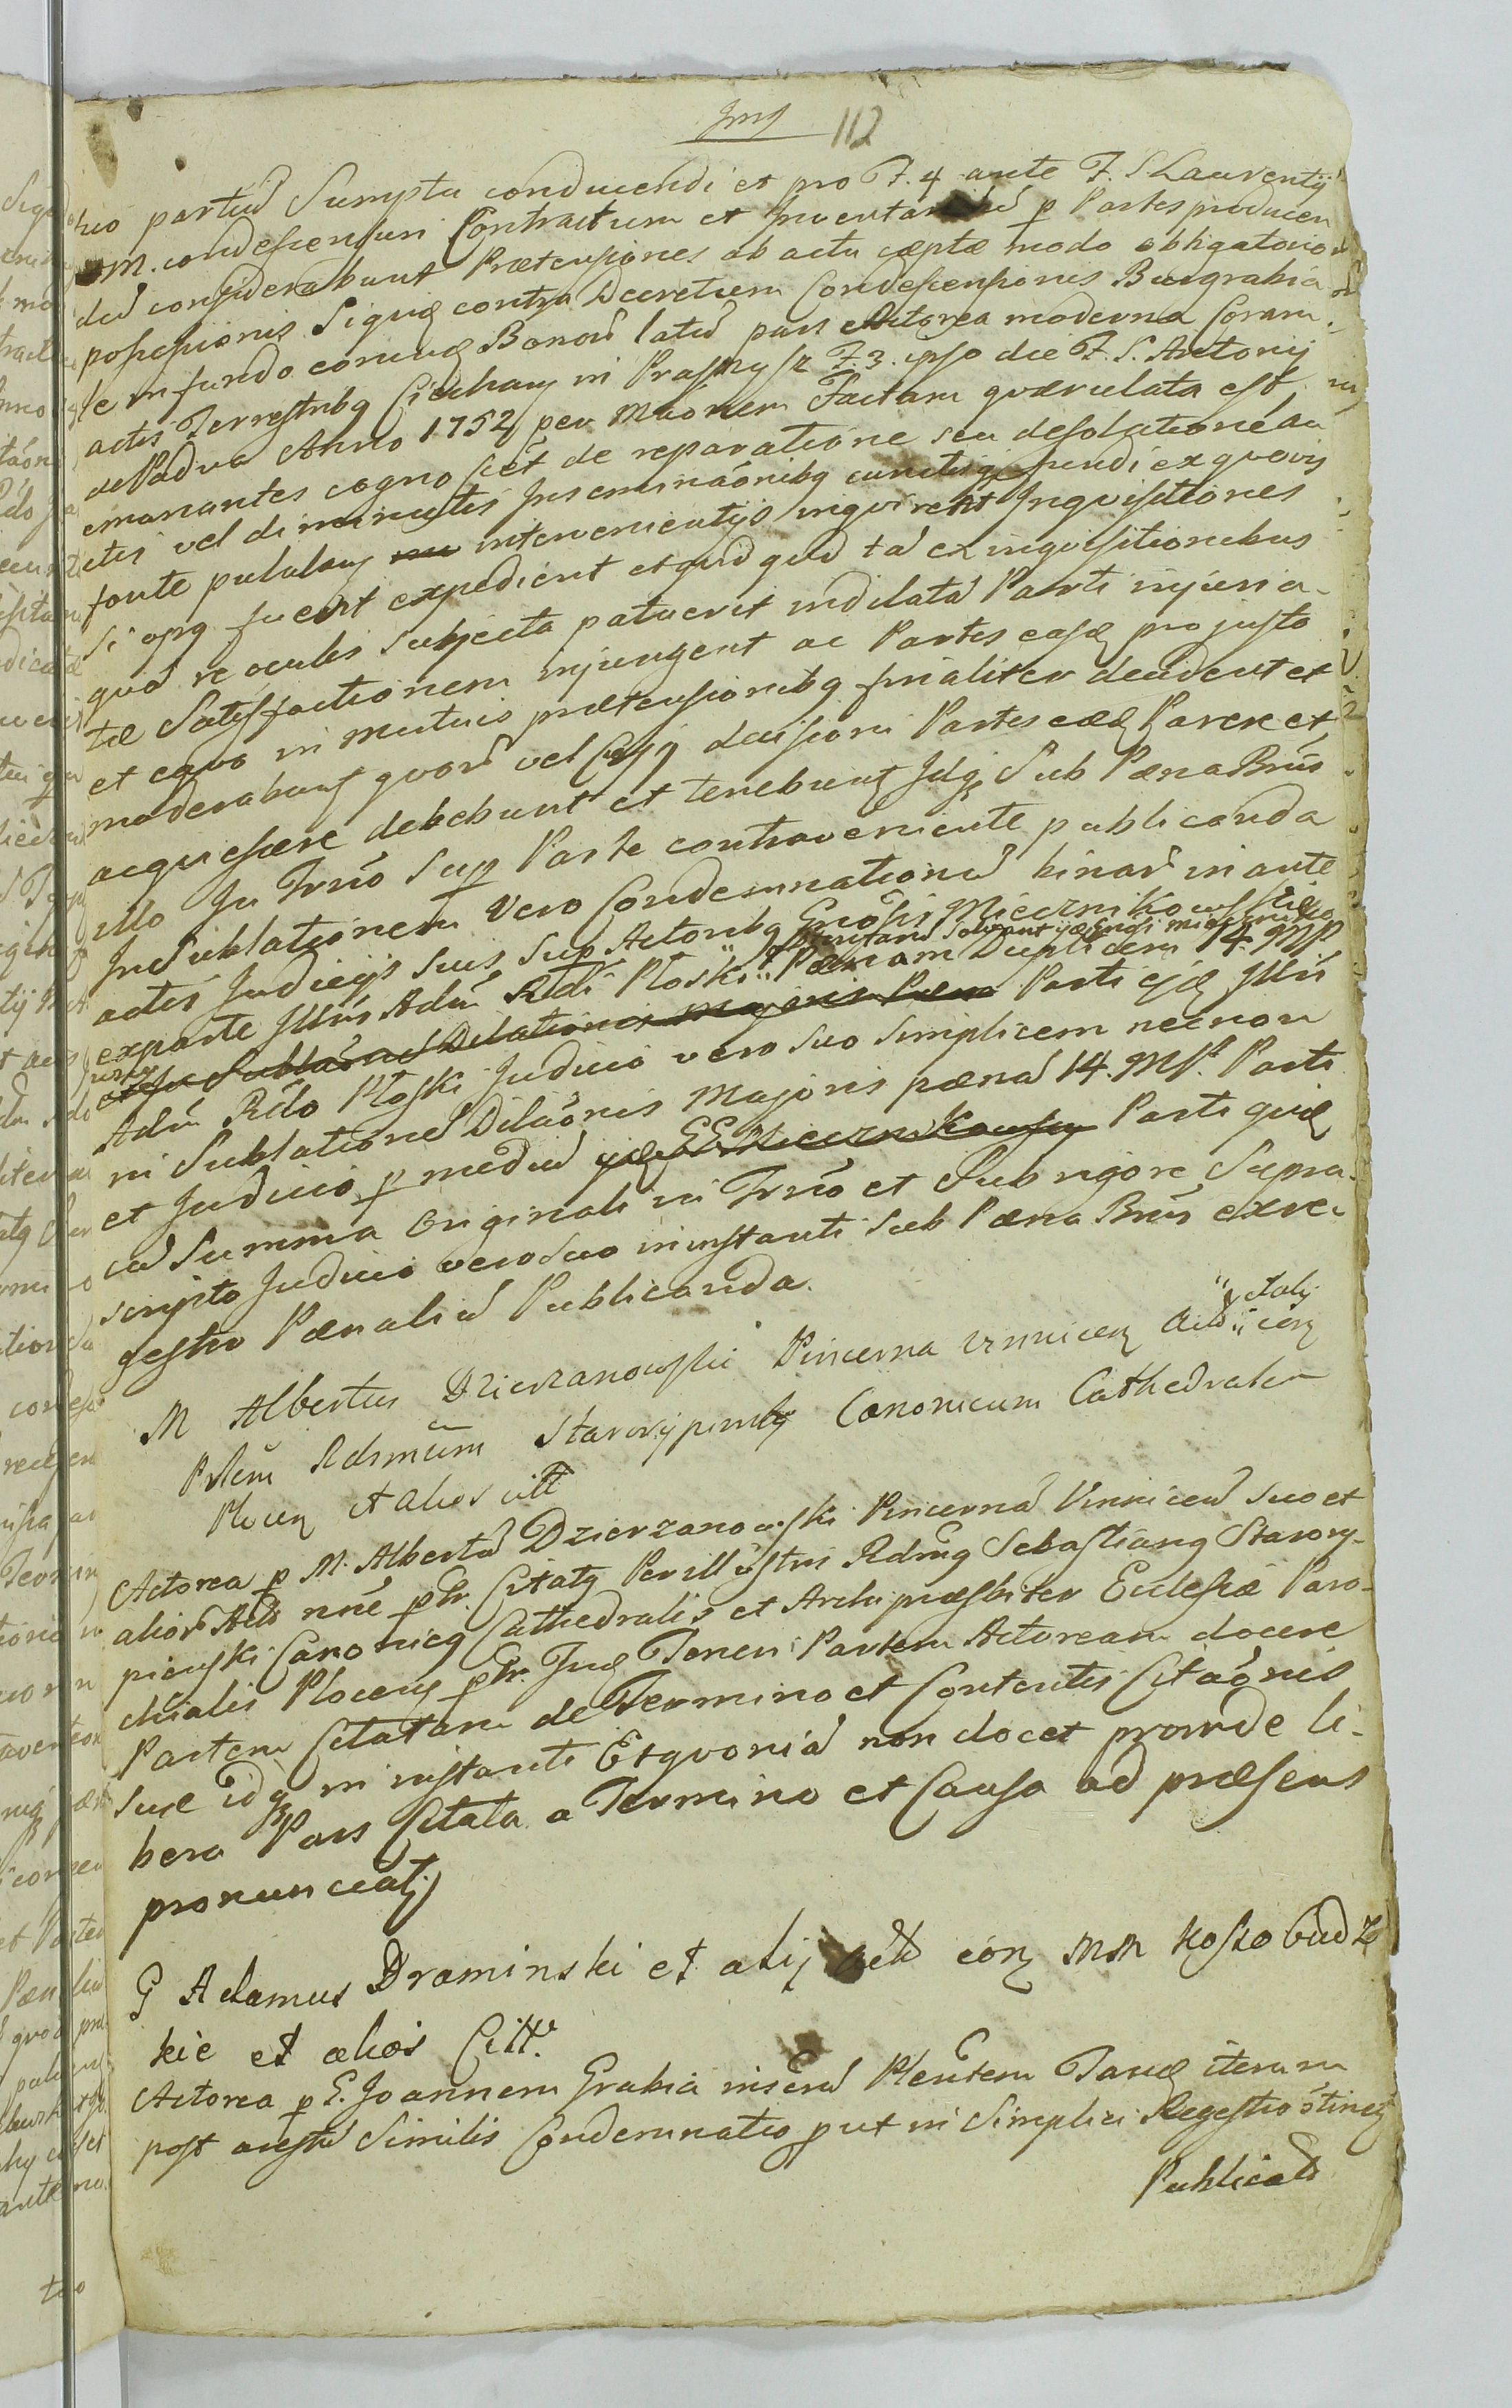 112
partiũ Sumptu conducendi et pro F. 4 ante F. S Laurentij
M. condescensuri Contractum et Inventariũ p Partes producen
dũ considerabunt Prætensiones ab actu cæptæ modo obligatorio
possessionis Sique contra Decretum Condescensionis Burgrabia
le in fundo eorumq Bonorũ latũ pars Actorea moderna Coram
actis Terrestribq Ciechanz in Prasnysz F. 3. ipso die F. S. Antonij
de Padua Anno 1752 per Mãonem Factam quærulata est
emanantes cognoscẽt de reparatione seu desolatione au
ctis vel diminutis Inseminãonibq cunctisq fundi ex quovis
fonte pululanz intervenientijs inquirent Inquisitiones
si opq fuerit expedient et quidquid tã ex inquisitionibus
quã re oculis subjecta patuerit indilatã Parti injuria
tæ Satisfactionem injungent ac Partes easq pro justo
et equo in mutuis prætensionibq finaliter decident et
moderabunt quorũ vel decisioni Partes eæq Parere et
acquiescere debebunt et tenebuntz Idq Sub Pæna Bnis
illo In Trnõ Sup Parte contraveniente publicanda
In Sublationem Vero Condemnationũ binarũ in ante
actis Judicijs suis Sup Actoribq Gnosis Miecznikowskie
ex parte Illris Adm Rdi Ploski Pænam Duplicem 14. MP
Parti ejq Illri
Adm Rdo Ploski Judicio vero suo simplicem necnon
in Sublationẽ Dilãonis Majoris pænã 14. MP. Parti
et Judicio p mediũ Parti quiq
cũ Summa Originali in Trnõ et Sub rigore Supra
scripto Judicio vero suo in instanti sub Pæna Bnis ex re
gestro Pænaliũ Publicanda.
M Albertus Dzierzanowski Pincerna Vinnicenz Act et alij conz
Prlem Rdsmum Starorypinsky Canonicum Cathedralem
Plocen et alios citt
Actorea p M. Albertũ Dzierzanowski Pincernã Vinnicen suo et
aliorũ Act nne pthr. Citatq Perillustris Rdmq Sebastianq Starory-
pienski Canonicq Cathedralis et Archipræsbiter Ecclesiæ Paro-
chialis Plocenz pthr. Judq Teneri Partem Actoream docere
Partem Citatam de Termino et Contentis Citãonis
suæ idq in instanti Et quoniã non docet proinde li-
bera Pars Citata a Termino et Causa ad præsens
pronunciatz
G Adamus Draminski et alij Act conz MM Kossobudz
kie et alios Citt.
Actorea p G. Joannem Grabia insẽrũ Plentem Tanq iterum
post arestũ Similis Condemnatio put in Simplici Regestro õtinetz
Publicata